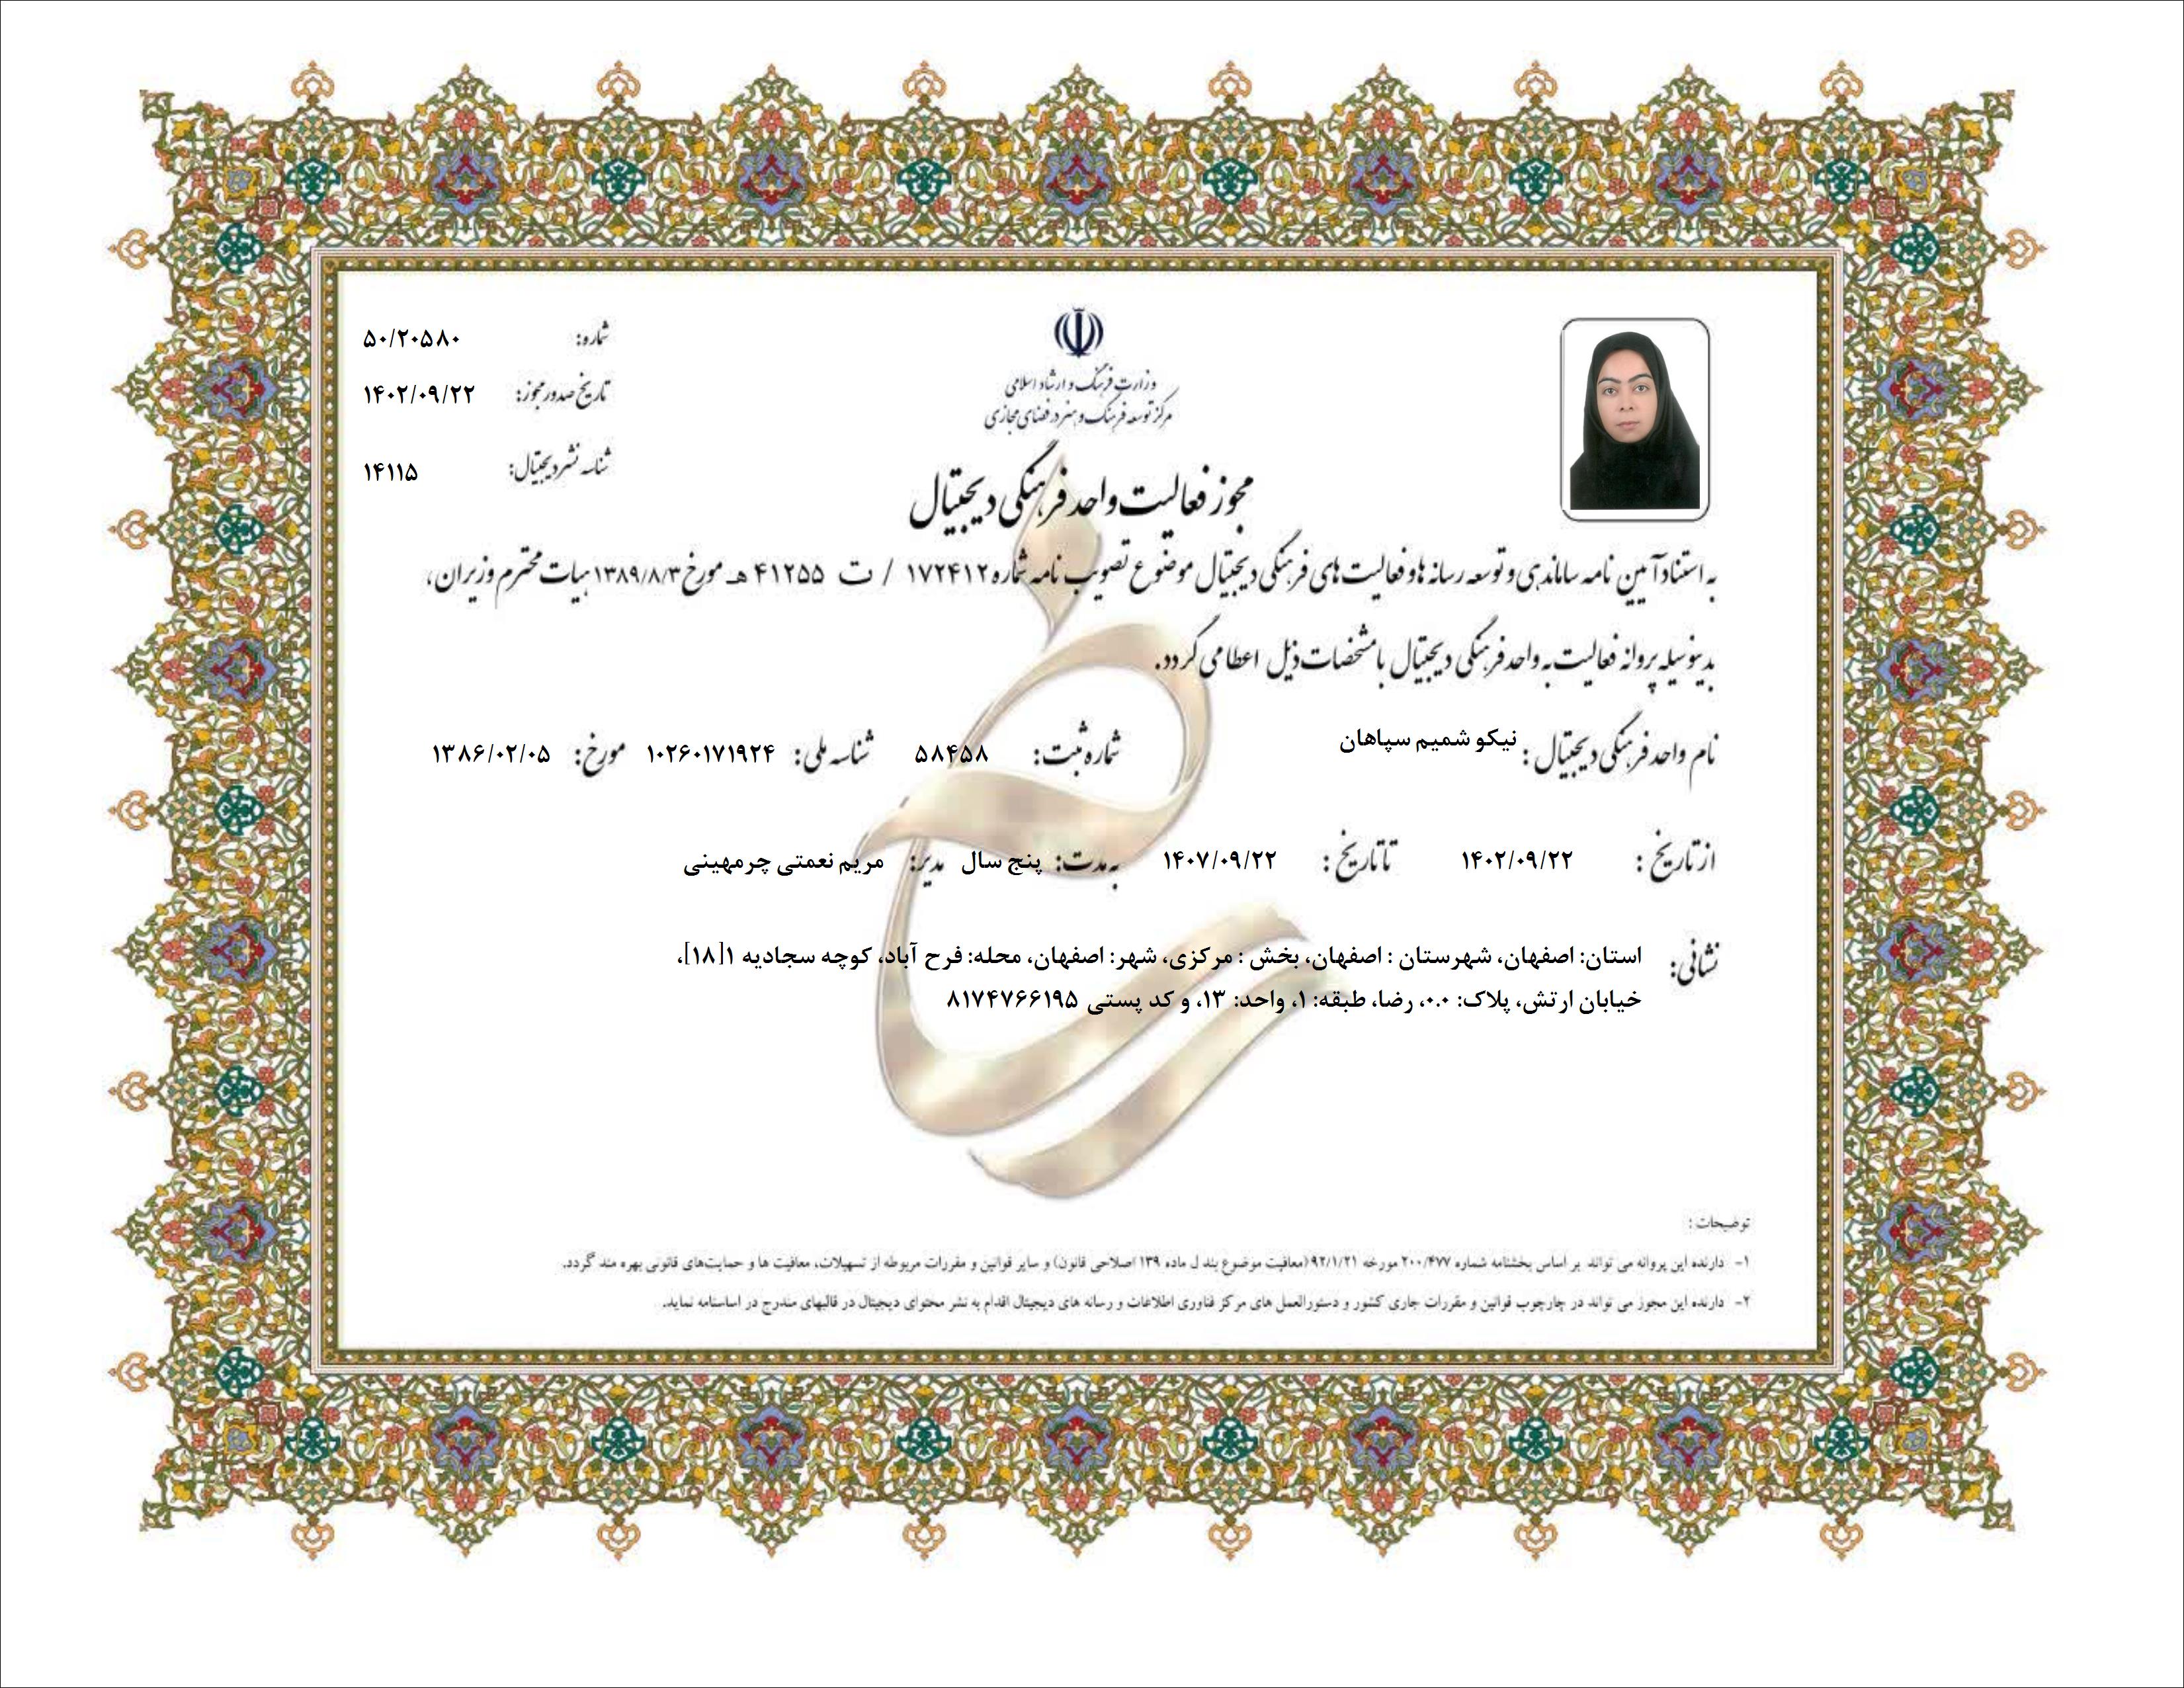 وزارت فرهنگ و ارشاد اسلامی
مرکز توسعه فرهنگ و هنر در فضای مجازی
شماره: ۵۰/۲۰۵۸۰
تاریخ صدور مجوز: ۱۴۰۲/۰۹/۲۲
شناسه نشر دیجیتال: ۱۴۱۱۵
مجوز فعالیت واحد فرهنگی دیجیتال
به استناد آیین نامه ساماندهی و توسعه رسانه ها و فعالیت های فرهنگی دیجیتال موضوع تصویب نامه شماره ۱۷۲۴۱۲ / ت ۴۱۲۵۵ هـ مورخ ۱۳۸۹/۸/۳ هیات محترم وزیران،
بدینوسیله پروانه فعالیت به واحد فرهنگی دیجیتال با مشخصات ذیل اعطا می گردد.
نام واحد فرهنگی دیجیتال : نیکو شمیم سپاهان شماره ثبت: ۵۸۴۵۸ شناسه ملی: ۱۰۲۶۰۱۷۱۹۲۴ مورخ: ۱۳۸۶/۰۲/۰۵
از تاریخ : ۱۴۰۲/۰۹/۲۲ تا تاریخ : ۱۴۰۷/۰۹/۲۲ به مدت: پنج سال مدیر: مریم نعمتی چرمهینی
نشانی: استان: اصفهان، شهرستان : اصفهان، بخش : مرکزی، شهر: اصفهان، محله: فرح آباد، کوچه سجادیه ۱[۱۸]،
خیابان ارتش، پلاک: ۰.۰، رضا، طبقه: ۱، واحد: ۱۳، و کد پستی ۸۱۷۴۷۶۶۱۹۵
توضیحات :
۱- دارنده این پروانه می تواند بر اساس بخشنامه شماره ۲۰۰/۴۷۷ مورخه ۹۲/۱/۲۱ (معافیت موضوع بند ل ماده ۱۳۹ اصلاحی قانون) و سایر قوانین و مقررات مربوطه از تسهیلات، معافیت ها و حمایت‌های قانونی بهره مند گردد.
۲- دارنده این مجوز می تواند در چارچوب قوانین و مقررات جاری کشور و دستورالعمل های مرکز فناوری اطلاعات و رسانه های دیجیتال اقدام به نشر محتوای دیجیتال در قالبهای مندرج در اساسنامه نماید.